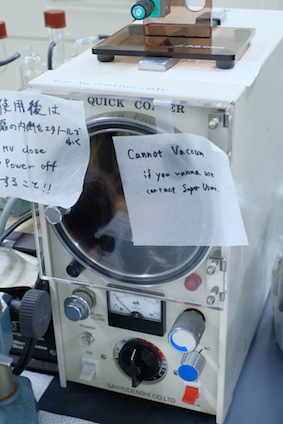 QUICK COATER
使用後は
扉の内側をエタノールでふく
MV close
Power off
すること!!
Cannot Vaccum
if you wanna use
contact Super User.
mA
POWER
ON
SANYUDENSHI CO.LTD